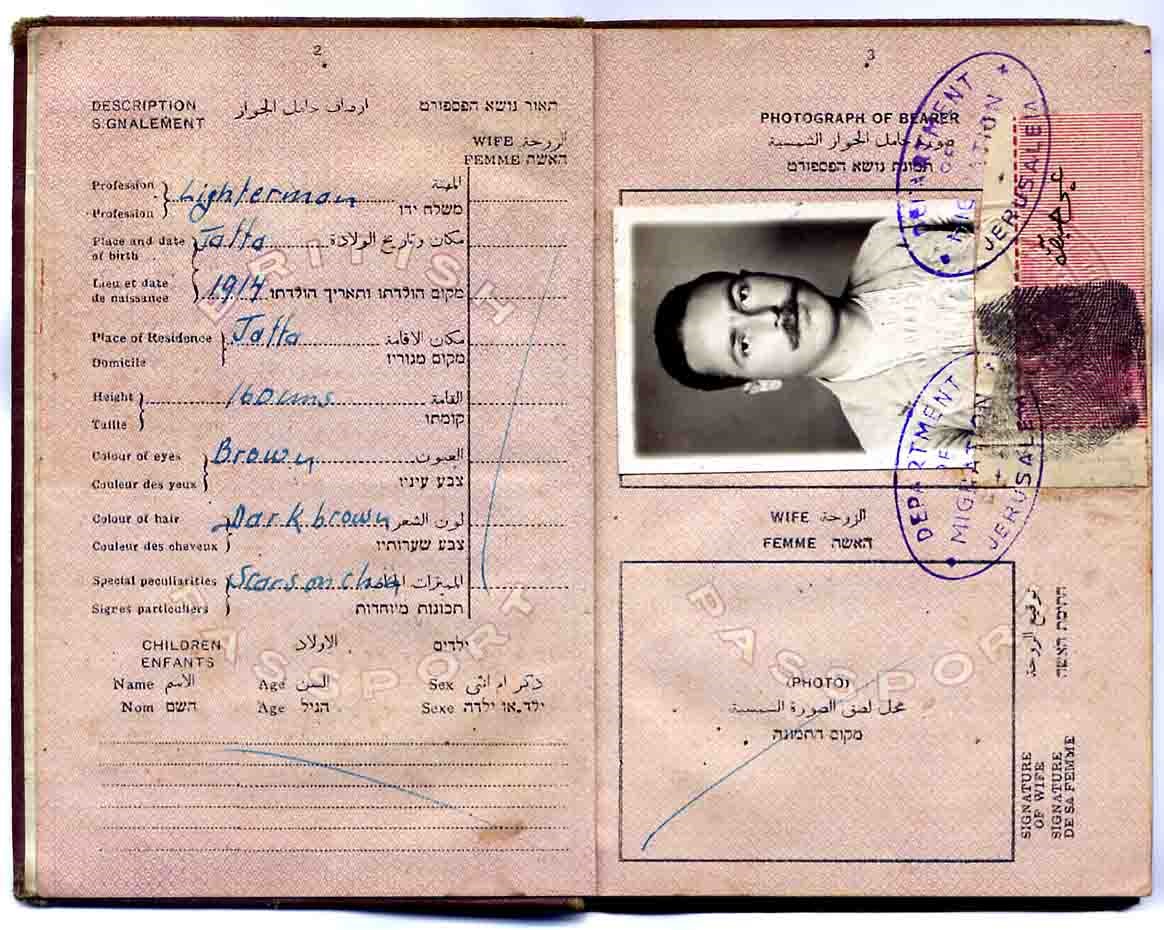 2
DESCRIPTION اوصاف حامل الجواز תאור נושא הפספורט
SIGNALEMENT
WIFE الزوجة
FEMME האשה
Profession Lighterman المهنة
Profession משלח ידו
Place and date of birth Jaffa مكان وتاريخ الولادة
Lieu et date de naissance 1914 מקום הולדתו ותאריך הולדתו
Place of Residence Jaffa مكان الاقامة
Domicile מקום מגוריו
Height 160 cms القامة
Taille קומתו
Colour of eyes Brown العيون
Couleur des yeux צבע עיניו
Colour of hair Dark brown لون الشعر
Couleur des cheveux צבע שערותיו
Special peculiarities Scars on chin المميزات
Signes particuliers תכונות מיוחדות
BRITISH
PASSPORT
CHILDREN الاولاد ילדים
ENFANTS
Name الاسم Age السن Sex ذكر او انثى
Nom השם Age הגיל Sexe ילד או ילדה
3
PHOTOGRAPH OF BEARER
صورة حامل الجواز الشمسية
תמונת נושא הפספורט
DEPARTMENT OF MIGRATION JERUSALEM
DEPARTMENT OF MIGRATION JERUSALEM
WIFE الزوجة
FEMME האשה
PASSPORT
(PHOTO)
محل لصق الصورة الشمسية
מקום התמונה
توقيع الزوجة
חתימת האשה
SIGNATURE OF WIFE
SIGNATURE DE SA FEMME